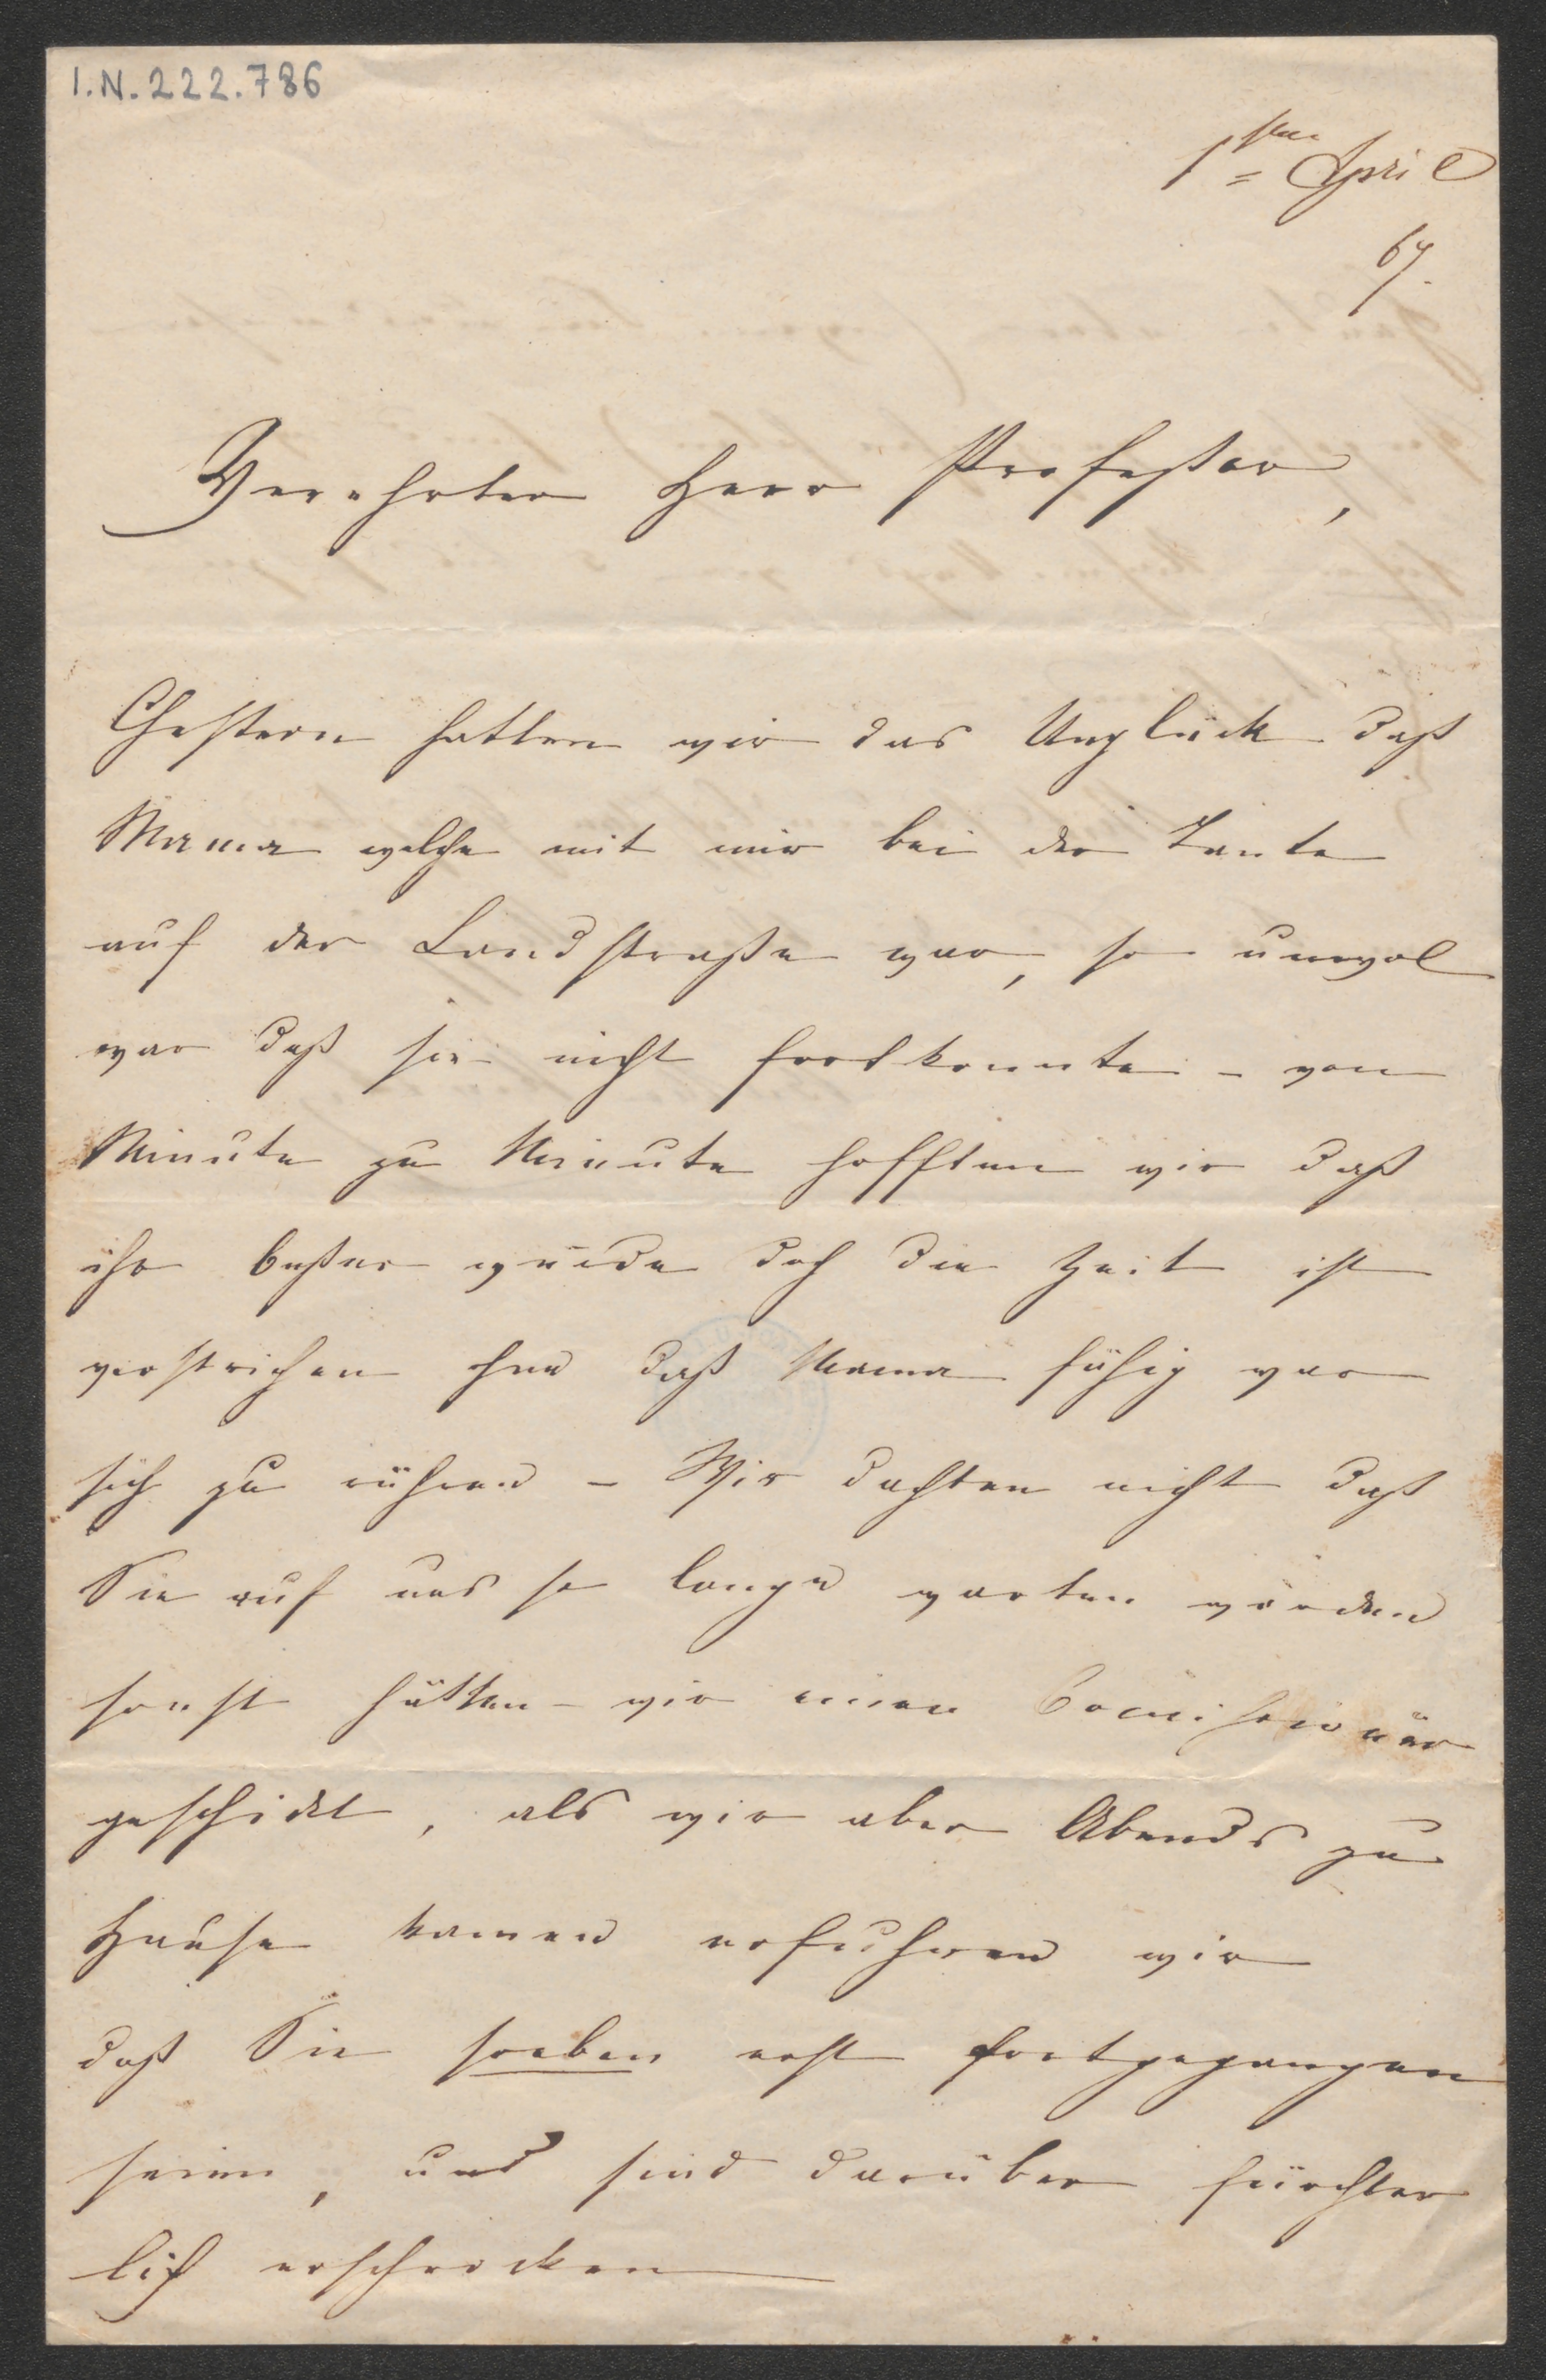 I.N. 222.786
1sten April
67.
Verehrter Herr Profeßor,
Gestern hatten wir das Unglück daß
Mama welche mit mir bei der Tante
auf der Landstraße war, so unwol
war daß sie nicht fortkonnte – von
Minute zu Minute hofften wir daß
ihr beßer würde doch die Zeit ist
verstrichen ohne daß Mama fähig war
sich zu rühren – Wir dachten nicht daß
Sie auf uns so lange warten würden
sonst hätten wir einen Comissionär
geschickt, als wir aber Abends zu
Hause kamen erfuhren wir
daß Sie soeben erst fortgegangen
seien, und sind darüber fürchter
lich erschrocken